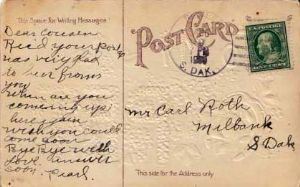 This Space for Writing Messages
POST CARD
Dear Cousin
Recd your card
was very glad
to hear from
you
when are you
coming up
here again
wish you could
come soon
Bye Bye with
love answer
soon. Pearl.
S. DAK.
Mr Carl Roth
Milbank
S Dak
This side for the Address only